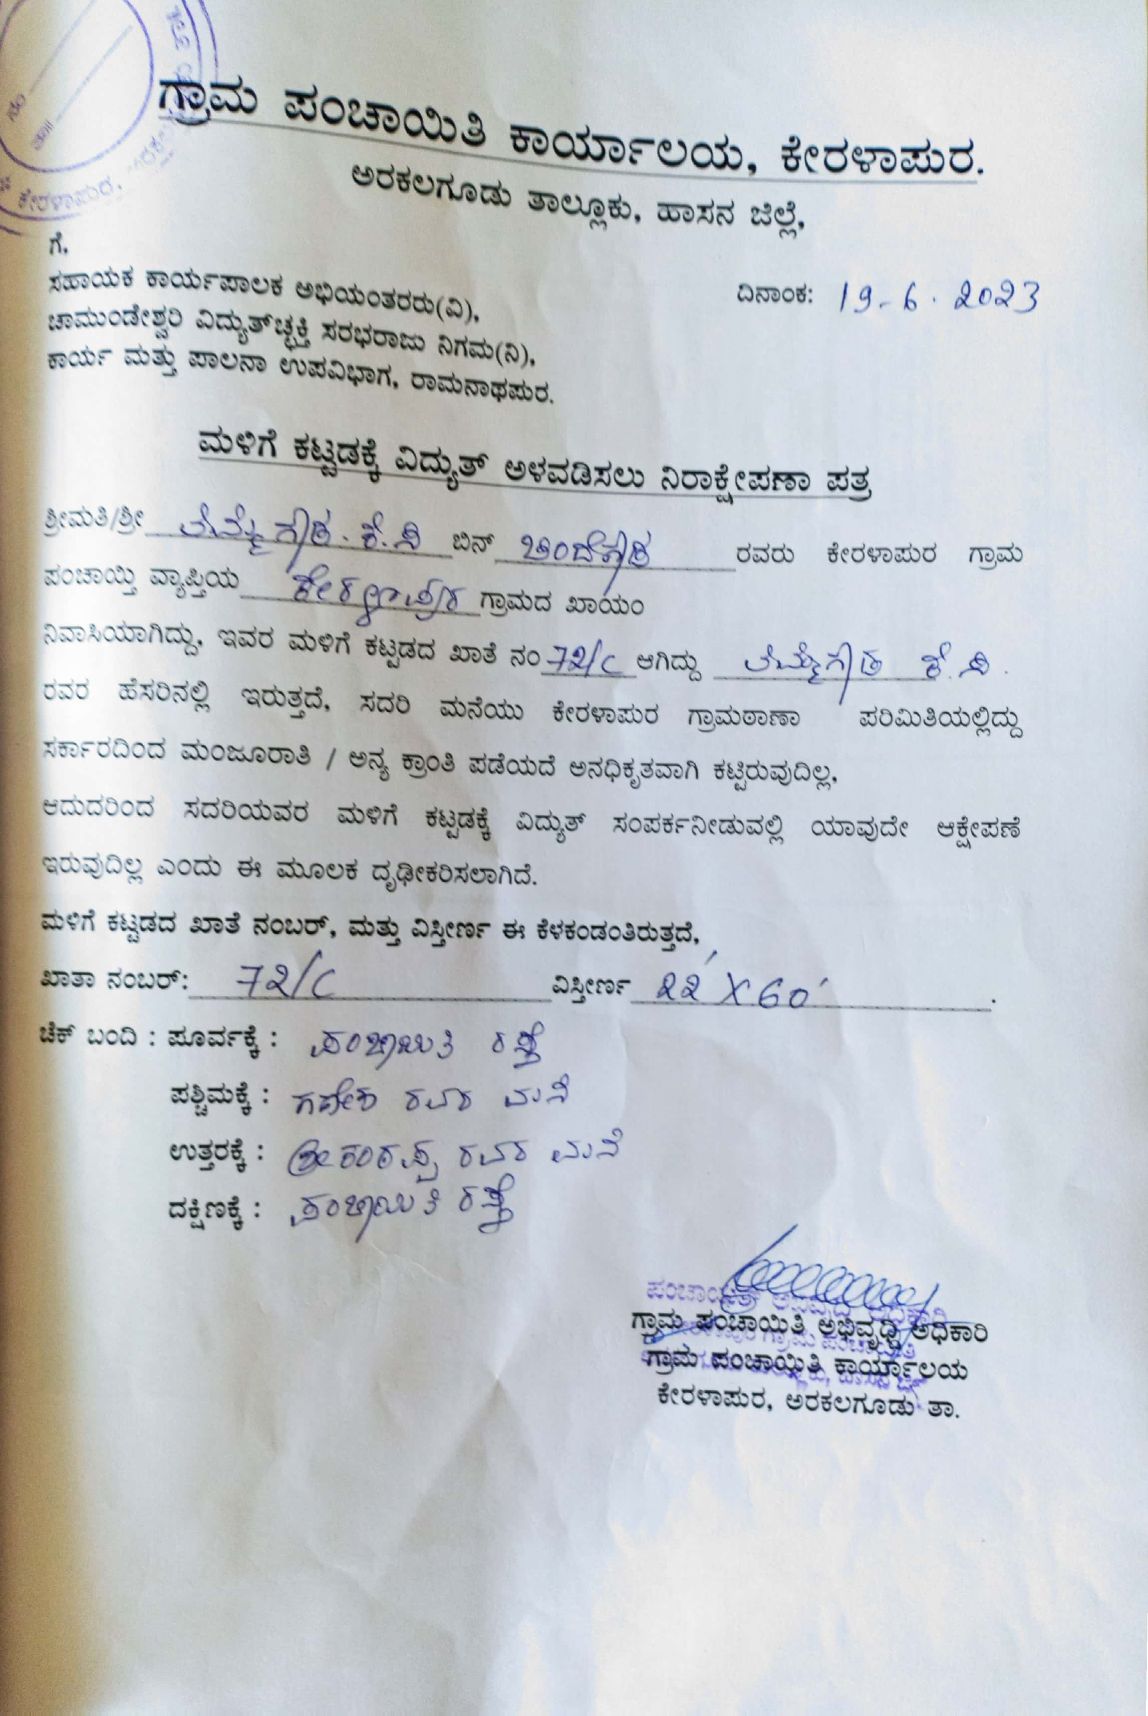 ಕೇರಳಾಪುರ,
ಗ್ರಾಮ ಪಂಚಾಯಿತಿ ಕಾರ್ಯಾಲಯ, ಕೇರಳಾಪುರ.
ಅರಕಲಗೂಡು ತಾಲ್ಲೂಕು, ಹಾಸನ ಜಿಲ್ಲೆ,
ಗೆ,
ಸಹಾಯಕ ಕಾರ್ಯಪಾಲಕ ಅಭಿಯಂತರರು(ವಿ), ದಿನಾಂಕ: 19-6-2023
ಚಾಮುಂಡೇಶ್ವರಿ ವಿದ್ಯುತ್‌ಚ್ಛಕ್ತಿ ಸರಭರಾಜು ನಿಗಮ(ನಿ),
ಕಾರ್ಯ ಮತ್ತು ಪಾಲನಾ ಉಪವಿಭಾಗ, ರಾಮನಾಥಪುರ.
ಮಳಿಗೆ ಕಟ್ಟಡಕ್ಕೆ ವಿದ್ಯುತ್ ಅಳವಡಿಸಲು ನಿರಾಕ್ಷೇಪಣಾ ಪತ್ರ
ಶ್ರೀಮತಿ/ಶ್ರೀ ತಿಮ್ಮೇಗೌಡ. ಕೆ.ವಿ ಬಿನ್ ರವರು ಕೇರಳಾಪುರ ಗ್ರಾಮ
ಪಂಚಾಯ್ತಿ ವ್ಯಾಪ್ತಿಯ ಕೇರಳಾಪುರ ಗ್ರಾಮದ ಖಾಯಂ
ನಿವಾಸಿಯಾಗಿದ್ದು, ಇವರ ಮಳಿಗೆ ಕಟ್ಟಡದ ಖಾತೆ ನಂ 72/C ಆಗಿದ್ದು ತಿಮ್ಮೇಗೌಡ ಕೆ.ವಿ.
ರವರ ಹೆಸರಿನಲ್ಲಿ ಇರುತ್ತದೆ, ಸದರಿ ಮನೆಯು ಕೇರಳಾಪುರ ಗ್ರಾಮಠಾಣಾ ಪರಿಮಿತಿಯಲ್ಲಿದ್ದು
ಸರ್ಕಾರದಿಂದ ಮಂಜೂರಾತಿ / ಅನ್ಯ ಕ್ರಾಂತಿ ಪಡೆಯದೆ ಅನಧಿಕೃತವಾಗಿ ಕಟ್ಟಿರುವುದಿಲ್ಲ,
ಆದುದರಿಂದ ಸದರಿಯವರ ಮಳಿಗೆ ಕಟ್ಟಡಕ್ಕೆ ವಿದ್ಯುತ್ ಸಂಪರ್ಕನೀಡುವಲ್ಲಿ ಯಾವುದೇ ಆಕ್ಷೇಪಣೆ
ಇರುವುದಿಲ್ಲ ಎಂದು ಈ ಮೂಲಕ ದೃಢೀಕರಿಸಲಾಗಿದೆ.
ಮಳಿಗೆ ಕಟ್ಟಡದ ಖಾತೆ ನಂಬರ್, ಮತ್ತು ವಿಸ್ತೀರ್ಣ ಈ ಕೆಳಕಂಡಂತಿರುತ್ತದೆ,
ಖಾತಾ ನಂಬರ್: 72/C ವಿಸ್ತೀರ್ಣ 22' X 60' .
ಚೆಕ್ ಬಂದಿ : ಪೂರ್ವಕ್ಕೆ : ಪಂಚಾಯಿತಿ ರಸ್ತೆ
ಪಶ್ಚಿಮಕ್ಕೆ : ಗಣೇಶ ರವರ ಮನೆ
ಉತ್ತರಕ್ಕೆ : ಶ್ರೀಕಂಠಪ್ಪ ರವರ ಮನೆ
ದಕ್ಷಿಣಕ್ಕೆ : ಪಂಚಾಯಿತಿ ರಸ್ತೆ
ಗ್ರಾಮ ಪಂಚಾಯಿತಿ ಅಭಿವೃದ್ಧಿ ಅಧಿಕಾರಿ
ಗ್ರಾಮ ಪಂಚಾಯಿತಿ ಕಾರ್ಯಾಲಯ
ಕೇರಳಾಪುರ, ಅರಕಲಗೂಡು ತಾ.